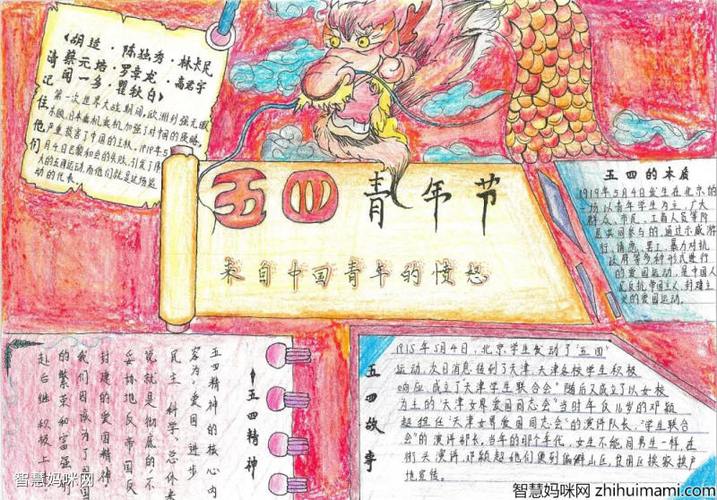 请记住他们
〈胡适·陈独秀·林长民
蔡元培·罗章龙·高君宇
闻一多·瞿秋白〉
第一次世界大战期间,欧洲列强无暇
东顾,日本乘机加强了对中国的侵略,
严重损害了中国的主权。1919年5
月4日巴黎和会的失败,引发了伟
大的五四运动,而他们就是这场运
动的代表
五四青年节
来自中国青年的愤怒
五四的本质
1919年5月4日发生在北京的
一场以青年学生为主,广大
群众、市民、工商人员等阶
层共同参与的,通过示威游
行、请愿、罢工、暴力对抗
政府等多种形式进行
的爱国运动,是中国人
民反抗帝国主义、封建主
义的爱国运动。
五四精神
五四精神的核心内
容为:爱国、进步
民主、科学。总体来
说就是彻底的不
妥协地反帝国反
封建的爱国精神
我们因该为了国
的繁荣和富强
赴后继积极上
五四故事
1915年5月4日,北京学生发动了“五四”
运动,次日消息传到了天津,天津各校学生积极
响应,成立了“天津学生联合会”随后又成立了以女校
为主的“天津女界爱国同志会”当时年仅15岁的邓颖
超担任“天津女界爱国同志会”的演讲队长、“学生联合
会”的演讲部长,当年的那个年代,女生不能同男生一样,在
街头演讲,邓颖超他们便到偏僻山区,贫困区挨家挨户
地宣传。
智慧妈咪网
智慧妈咪网 zhihuimami.com